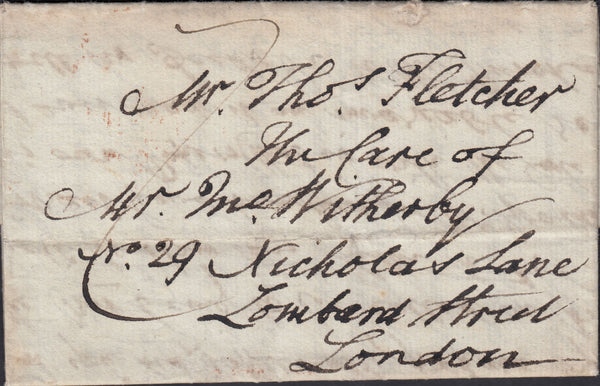 Mr. Thos. Fletcher
The Care of
Mr. Witherby
No. 29 Nicholas Lane
Lombard Street
London